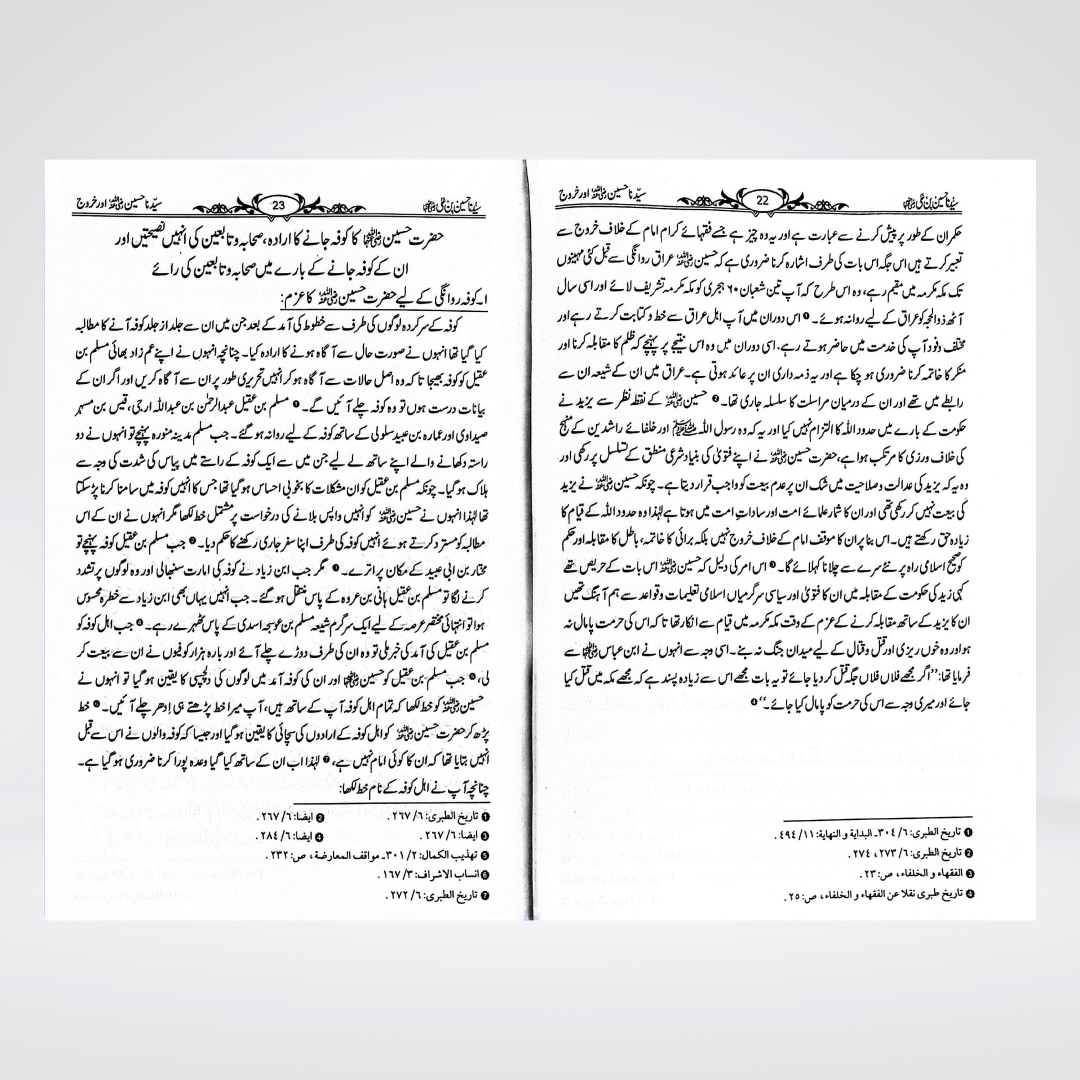 سیّدنا حسین بن علی رضی اللہ عنہما 22 سیّدنا حسین رضی اللہ عنہ اور خروج
حکمران کے طور پر پیش کرنے سے عبارت ہے اور یہ وہ چیز ہے جسے فقہائے کرام امام کے خلاف خروج سے
تعبیر کرتے ہیں اس جگہ اس بات کی طرف اشارہ کرنا ضروری ہے کہ حسین رضی اللہ عنہ عراق روانگی سے قبل کئی مہینوں
تک مکہ مکرمہ میں مقیم رہے، وہ اس طرح کہ آپ تین شعبان ۶۰ ہجری کو مکہ مکرمہ تشریف لائے اور اسی سال
آٹھ ذوالحجہ کو عراق کے لیے روانہ ہوئے۔ ❶ اس دوران میں آپ اہل عراق سے خط و کتابت کرتے رہے اور
مختلف وفود آپ کی خدمت میں حاضر ہوتے رہے۔ اسی دوران میں وہ اس نتیجے پر پہنچے کہ ظلم کا مقابلہ کرنا اور
منکر کا خاتمہ کرنا ضروری ہو چکا ہے اور یہ ذمہ داری ان پر عائد ہوتی ہے۔ عراق میں ان کے شیعہ ان سے
رابطے میں تھے اور ان کے درمیان مراسلت کا سلسلہ جاری تھا۔ ❷ حسین رضی اللہ عنہ کے نقطہ نظر سے یزید نے
حکومت کے بارے میں حدود اللہ کا التزام نہیں کیا اور یہ کہ وہ رسول اللہ ﷺ اور خلفائے راشدین کے منہج
کی خلاف ورزی کا مرتکب ہوا ہے، حضرت حسین رضی اللہ عنہ نے اپنے فتویٰ کی بنیاد شرعی منطق کے تسلسل پر رکھی اور
وہ یہ کہ یزید کی عدالت و صلاحیت میں شک ان پر عدم بیعت کو واجب قرار دیتا ہے۔ چونکہ حسین رضی اللہ عنہ نے یزید
کی بیعت نہیں کر رکھی تھی اور ان کا شمار علمائے امت اور ساداتِ امت میں ہوتا ہے لہٰذا وہ حدود اللہ کے قیام کا
زیادہ حق رکھتے ہیں۔ اس بنا پر ان کا موقف امام کے خلاف خروج نہیں بلکہ برائی کا خاتمہ، باطل کا مقابلہ اور حکم
کو صحیح اسلامی راہ پر نئے سرے سے چلانا کہلائے گا۔ ❸ اس امر کی دلیل کہ حسین رضی اللہ عنہ اس بات کے حریص تھے
کہ یزید کی حکومت کے مقابلہ میں ان کا فتویٰ اور سیاسی سرگرمیاں اسلامی تعلیمات و قواعد سے ہم آہنگ تھیں
ان کا یزید کے ساتھ مقابلہ کرنے کے عزم کے وقت مکہ مکرمہ میں قیام سے انکار تھا تاکہ اس کی حرمت پامال نہ
ہو اور وہ خوں ریزی اور قتل و قتال کے لیے میدان جنگ نہ بنے۔ اسی وجہ سے انہوں نے ابن عباس رضی اللہ عنہما سے
فرمایا تھا: ’’اگر مجھے فلاں فلاں جگہ قتل کر دیا جائے تو یہ بات مجھے اس سے زیادہ پسند ہے کہ مجھے مکہ میں قتل کیا
جائے اور میری وجہ سے اس کی حرمت کو پامال کیا جائے۔‘‘ ❹
❶ تاریخ الطبری: ۶/ ۳۰۴۔ البدایة و النهایة: ۱۱/ ۴۹۴۔
❷ تاریخ الطبری: ۶/ ۲۷۳، ۲۷۴۔
❸ الفقهاء و الخلفاء، ص: ۲۳۔
❹ تاریخ طبری نقلا عن الفقهاء و الخلفاء، ص: ۲۵۔
سیّدنا حسین بن علی رضی اللہ عنہما 23 سیّدنا حسین رضی اللہ عنہ اور خروج
حضرت حسین رضی اللہ عنہ کا کوفہ جانے کا ارادہ، صحابہ و تابعین کی انہیں نصیحتیں اور
ان کے کوفہ جانے کے بارے میں صحابہ و تابعین کی رائے
۱۔ کوفہ روانگی کے لیے حضرت حسین رضی اللہ عنہ کا عزم:
کوفہ کے سرکردہ لوگوں کی طرف سے خطوط کی آمد کے بعد جن میں ان سے جلد از جلد کوفہ آنے کا مطالبہ
کیا گیا تھا انہوں نے صورت حال سے آگاہ ہونے کا ارادہ کیا۔ چنانچہ انہوں نے اپنے عم زاد بھائی مسلم بن
عقیل کو کوفہ بھیجا تاکہ وہ اصل حالات سے آگاہ ہو کر انہیں تحریری طور پر ان سے آگاہ کریں اور اگر ان کے
بیانات درست ہوں تو وہ کوفہ چلے آئیں گے۔ ❶ مسلم بن عقیل عبدالرحمٰن بن عبداللہ ارجی، قیس بن مسہر
صیداوی اور عمارہ بن عبید سلولی کے ساتھ کوفہ کے لیے روانہ ہو گئے۔ جب مسلم مدینہ منورہ پہنچے تو انہوں نے دو
راستہ دکھانے والے اپنے ساتھ لے لیے جن میں سے ایک کوفہ کے راستے میں پیاس کی شدت کی وجہ سے
ہلاک ہو گیا۔ چونکہ مسلم بن عقیل کو ان مشکلات کا بخوبی احساس ہو گیا تھا جس کا انہیں کوفہ میں سامنا کرنا پڑ سکتا
تھا لہٰذا انہوں نے حسین رضی اللہ عنہ کو انہیں واپس بلانے کی درخواست پر مشتمل خط لکھا مگر انہوں نے ان کے اس
مطالبہ کو مسترد کرتے ہوئے انہیں کوفہ کی طرف اپنا سفر جاری رکھنے کا حکم دیا۔ ❷ جب مسلم بن عقیل کوفہ پہنچے تو
مختار بن ابی عبید کے مکان پر اترے۔ ❸ مگر جب ابن زیاد نے کوفہ کی امارت سنبھالی اور وہ لوگوں پر تشدد
کرنے لگا تو مسلم بن عقیل ہانی بن عروہ کے پاس منتقل ہو گئے۔ جب انہیں یہاں بھی ابن زیاد سے خطرہ محسوس
ہوا تو انتہائی مختصر عرصہ کے لیے ایک سرگرم شیعہ مسلم بن عوسجہ اسدی کے پاس ٹھہرے رہے۔ ❹ جب اہل کوفہ کو
مسلم بن عقیل کی آمد کی خبر ملی تو وہ ان کی طرف دوڑے چلے آئے اور بارہ ہزار کوفیوں نے ان سے بیعت کر
لی، ❺ جب مسلم بن عقیل کو حسین رضی اللہ عنہ اور ان کی کوفہ آمد میں لوگوں کی دلچسپی کا یقین ہو گیا تو انہوں نے
حسین رضی اللہ عنہ کو خط لکھا کہ تمام اہل کوفہ آپ کے ساتھ ہیں، آپ میرا خط پڑھتے ہی اِدھر چلے آئیں۔ ❻ خط
پڑھ کر حضرت حسین رضی اللہ عنہ کو اہل کوفہ کے ارادوں کی سچائی کا یقین ہو گیا اور جیسا کہ کوفہ والوں نے اس سے قبل
انہیں بتایا تھا کہ ان کا کوئی امام نہیں ہے، ❼ لہٰذا اب ان کے ساتھ کیا گیا وعدہ پورا کرنا ضروری ہو گیا ہے۔
چنانچہ آپ نے اہل کوفہ کے نام خط لکھا:
❶ تاریخ الطبری: ۶/ ۲۶۷۔ ❷ ایضا: ۶/ ۲۶۷۔
❸ ایضا: ۶/ ۲۶۷۔ ❹ ایضا: ۶/ ۲۸۴۔
❺ تهذیب الکمال: ۲/ ۳۰۱۔ مواقف المعارضة، ص: ۲۳۲۔
❻ انساب الاشراف: ۳/ ۱۶۷۔
❼ تاریخ الطبری: ۶/ ۲۷۲۔